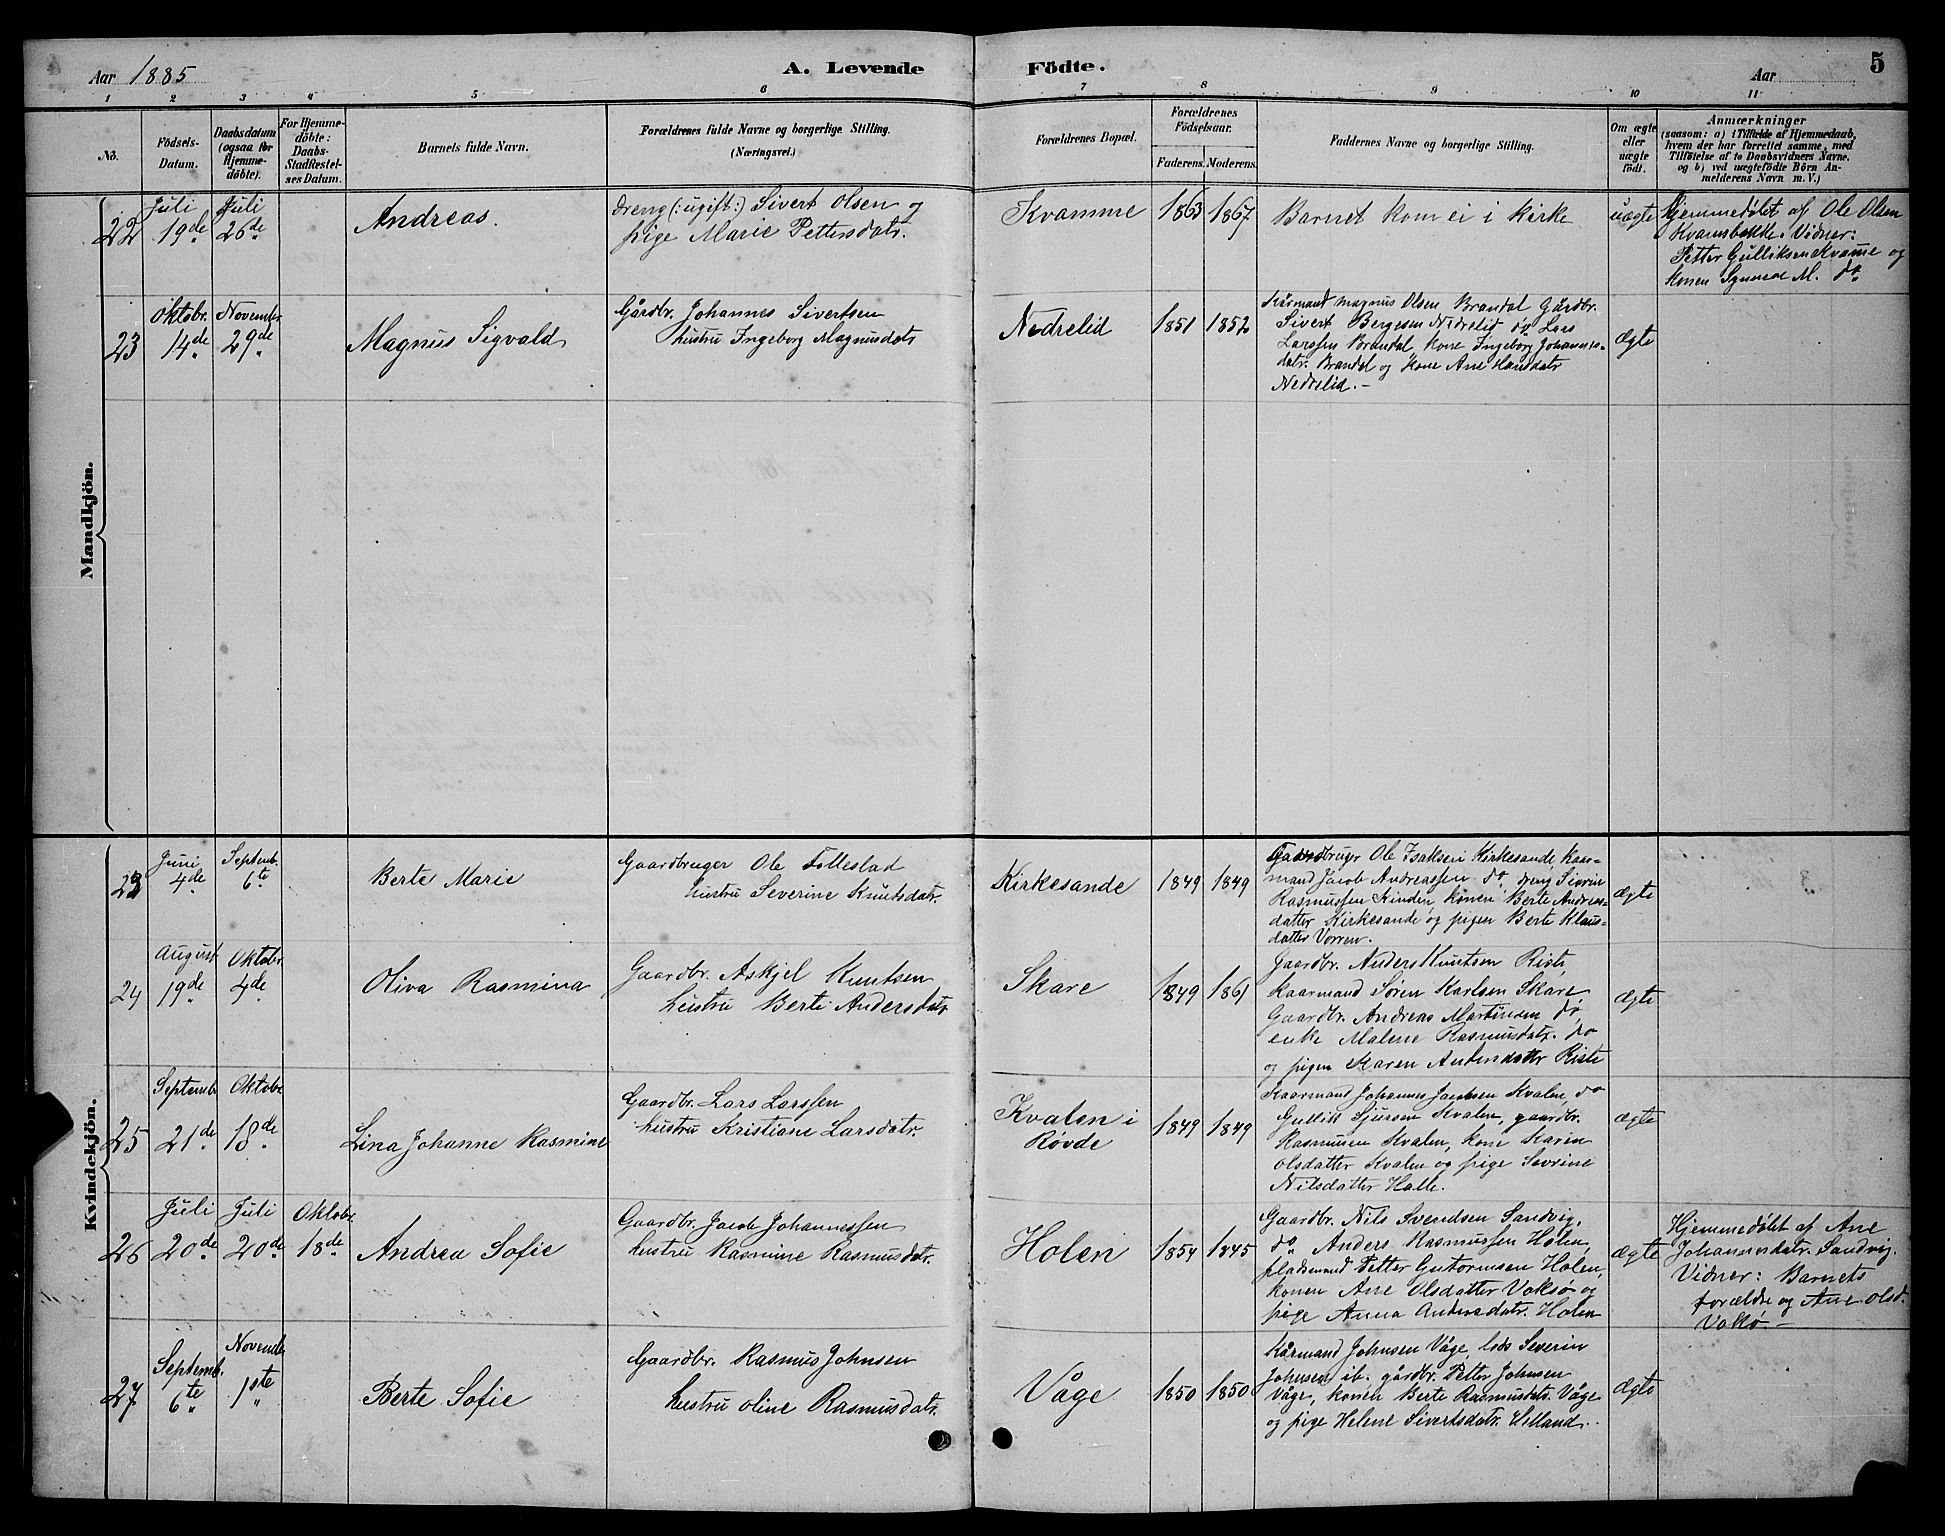 Aar 1885
A. Levende Födte.
Aar
5
1 2 3 4 5 6 7 8 9 10 11
No.
Födsels-
Datum.
Daabsdatum
(ogsaa for
Hjemme-
döbte).
For Hjemme-
döbte:
Daabs-
Stadfæstel-
ses Datum.
Barnets fulde Navn.
Forældrenes fulde Navne og borgerlige Stilling.
(Næringsvei.)
Forældrenes Bopæl.
Forældrenes
Födselsaar.
Faderens. Moderens.
Faddernes Navne og borgerlige Stilling.
Om ægte
eller
uægte
födt.
Anmærkninger
(saasom: a) i Tilfælde af Hjemmedaab,
hvem der har forrettet samme, med
Tilföielse af to Daabsvidners Navne,
og b) ved uægtefödte Børn An-
melderens Navn m. V.)
Mandkjön.
22
Juli
19de
Juli
26de
Andreas.
Dreng (: ugift:) Sivert Olsen og
pige Marie Pettersdatr.
Kvamme
1863 1867
Barnet kom ei i kirke
uægte
Hjemmedøbt af Ole Olsen
Kvamsbakke. Vidner:
Petter Gulliksen Kvamme og
konen Synneve M. do
23
Oktobr.
14de
November
29de
Magnus Sigvald
Gårdbr. Johannes Sivertsen
hustru Ingeborg Magnusdatr
Nedrelid
1851 1852
Kårmand Magnus Olsen Brandal Gårdbr.
Sivert Bergesen Nedrelid do Lars
Larssen Brandal, kone Ingeborg Johannes-
datr. Brandal og kone Ane Hansdatr
Nedrelid.-
Ægte
Kvindekjön.
23
Juni
4de
Septemb.
6te
Berte Marie
Gaardbruger Ole Folle­stad
hustru Severine Knutsdatr.
Kirkesande
1849 1849
Gaardbrugr Ole Isaksen Kirkesande, Kaar-
mand Jacob Andreassen do, dreng Sivrin
Rasmussen Kinden, konen Berte Andreas-
datter Kirkesande og pigen Berte Klaus-
datter Vorren.
Ægte
24
August
19de
Oktober
4de
Oliva Rasmina
Gaardbr. Askjel Knutsen
hustru Berte Andersdatr
Skare
1849 1861
Gaardbr. Anders Knutsen Riste,
kaarmand Søren Karlsen Skare,
Gaardbr. Andreas Martinsen do,
enke Malene Rasmusdatr. do
og pigen Karen Antondatter Riste
Ægte
25
Septemb.
21de
Oktobr
18de
Lina Johanne Rasmine
Gaardbr. Lars Larssen
hustru Kristiane Larsdatr.
Kvalen i
Røvde
1849 1849
Kaarmand Johannes Jacobsen Kvalen, do
Gullik Sjursen Kvalen, gaardbr.
Rasmus­en Kvalen, kone Karen
Olsdatter Kvalen og pige Sevrine
Nilsdatter Halle.
Ægte
26
Juli
20de
Juli
20de
Oktobr
18de
Andrea Sofie
Gaardbr. Jacob Johannessen
hustru Rasmine Rasmusdatr.
Holen
1854 1845
Gaardbr. Nils Svendsen Sandvig,
do Anders Rasmussen Holen,
pladsmand Petter Gutormsen Holen,
konen Ane Olsdatter Voksø og
pige Anna Andersdatr. Holen
ægte
Hjemmedøbt af Ane
Johannesdatr. Sandvig.
Vidner: Barnets
forældre og Ane Olsd.
Voksø.-
27
Septemb.
6te
Novemb.
1ste
Berte Sofie
Gaardbr. Rasmus Johnsen
hustru Oline Rasmusdatr.
Våge
1850 1850
Kårmand Johnsen Våge, lods Severin
Johnsen ib. gårdbr. Petter Johnsen
Våge, konen Berte Rasmusdatr. Våge
og pige Helene Sivertsdatr. Helland.
Ægte